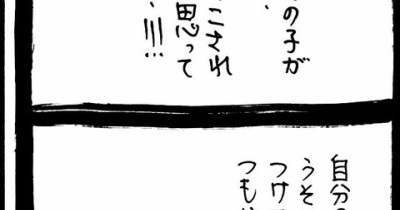 の子が
こされ
思って
!!!!
自分
うそ
つけ
つもり